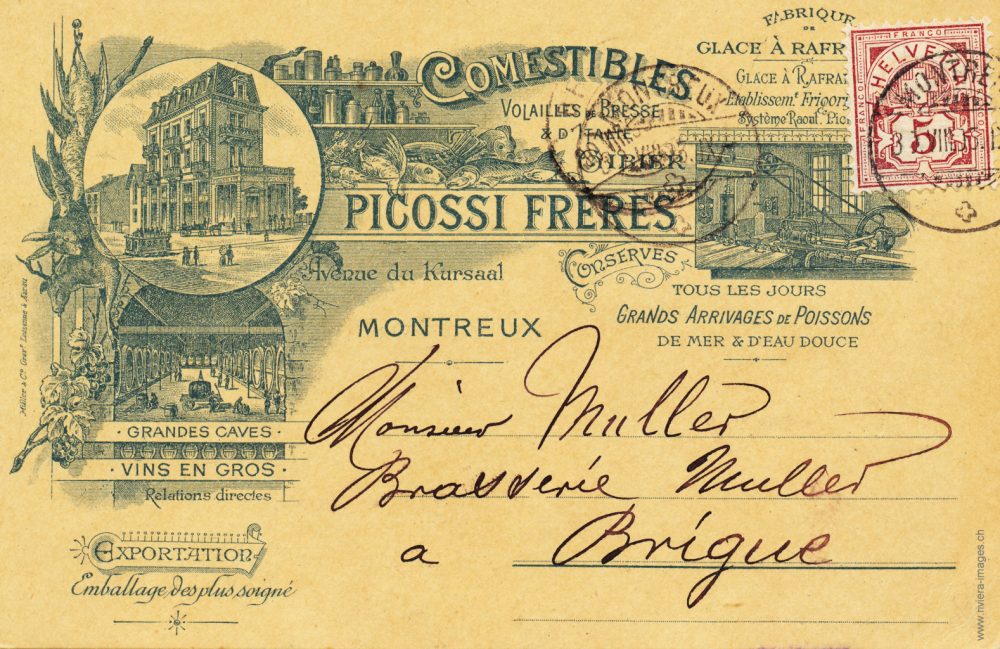 COMESTIBLES
VOLAILLES DE BRESSE
& D'ITALIE
GIBIER
PICOSSI FRÈRES
Avenue du Kursaal
MONTREUX
CONSERVES
FABRIQUE
DE
GLACE À RAFR
GLACE À RAFRAÎ
Etablissemt. Frigori
Système Raoul Pic
TOUS LES JOURS
GRANDS ARRIVAGES DE POISSONS
DE MER & D'EAU DOUCE
FRANCO
HELVE
FRANCO
5
MONTREUX
VIII
Monsieur Muller
Brasserie Muller
a Brigue
· GRANDES CAVES ·
· VINS EN GROS ·
Relations directes
EXPORTATION
Emballage des plus soigné
Müller & Cie
Lausanne & Aarau
www.riviera-images.ch